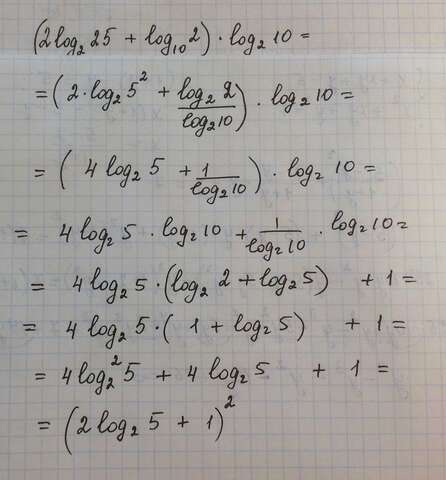 (2log₂ 25 + log₁₀ 2) · log₂ 10 =
= (2 · log₂ 5² + log₂ 2 / log₂ 10) · log₂ 10 =
= (4 log₂ 5 + 1 / log₂ 10) · log₂ 10 =
= 4 log₂ 5 · log₂ 10 + 1 / log₂ 10 · log₂ 10 =
= 4 log₂ 5 · (log₂ 2 + log₂ 5) + 1 =
= 4 log₂ 5 · (1 + log₂ 5) + 1 =
= 4 log₂² 5 + 4 log₂ 5 + 1 =
= (2 log₂ 5 + 1)²